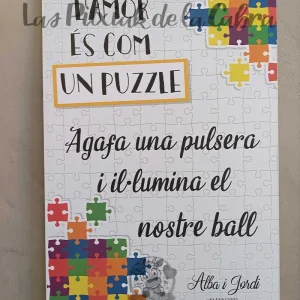 Las Pitxiak de la Cabra
L'AMOR
ÉS COM
UN PUZZLE
Agafa una pulsera
i il·lumina el
nostre ball
Alba i Jordi